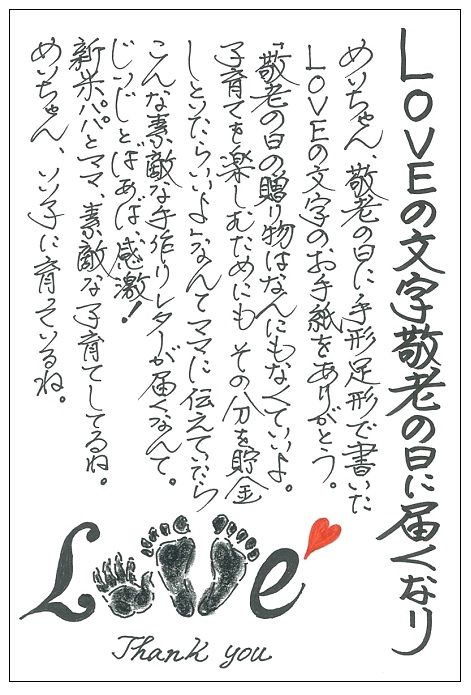 LOVEの文字敬老の日に届くなり
めいちゃん、敬老の日に手形足形で書いた
LOVEの文字のお手紙をありがとう。
「敬老の日の贈り物はなんにもなくていいよ。
子育てを楽しむためにも その分を貯金
しとったらいいよ」なんてママに伝えてたら
こんな素敵な手作りレターが届くなんて。
じいじとばあば、感激!
新米パパとママ、素敵な子育てしてるね。
めいちゃん、いい子に育っているね。
Love
Thank you